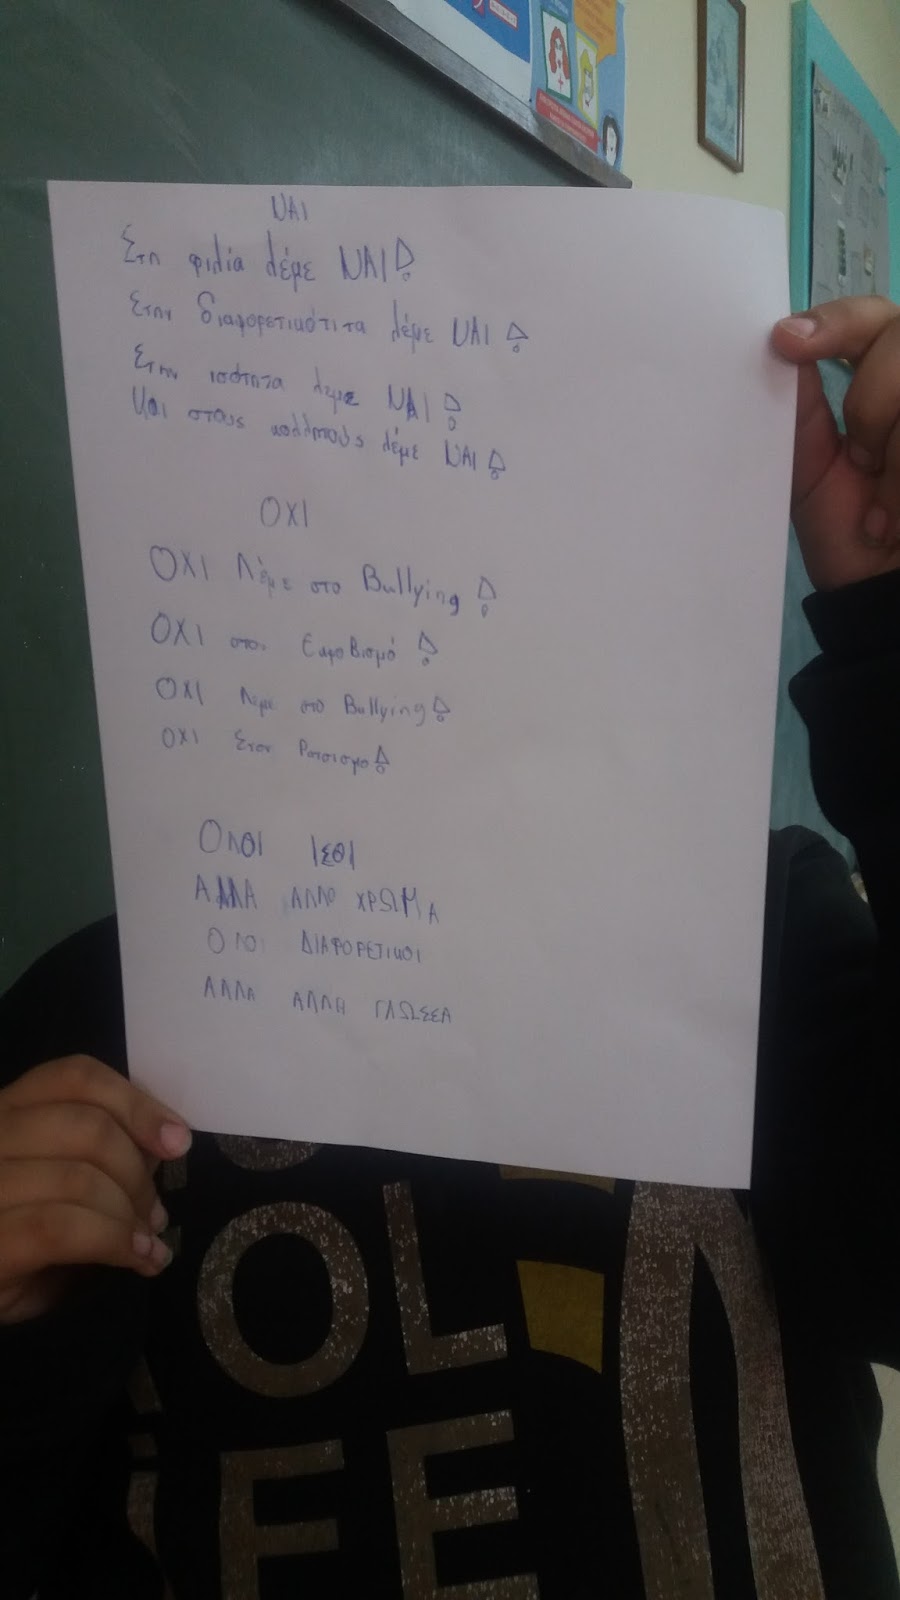 ΝΑΙ
Στη φιλία λέμε ΝΑΙ!
Στην διαφορετικότιτα λέμε ΝΑΙ!
Στην ισότητα λεμε ΝΑΙ!
Και στους κολλητούς λέμε ΝΑΙ!
ΟΧΙ
ΟΧΙ Λέμε στο Bullying!
ΟΧΙ στον Εκφοβισμό!
ΟΧΙ λεμε στο Bullying!
ΟΧΙ Στον Ρατσισμο!
ΟΛΟΙ ΙΣΟΙ
ΑΛΛΑ ΑΛΛΟ ΧΡΩΜΑ
ΟΛΟΙ ΔΙΑΦΟΡΕΤΙΚΟΙ
ΑΛΛΑ ΑΛΛΗ ΓΛΩΣΣΑ
OL
FE